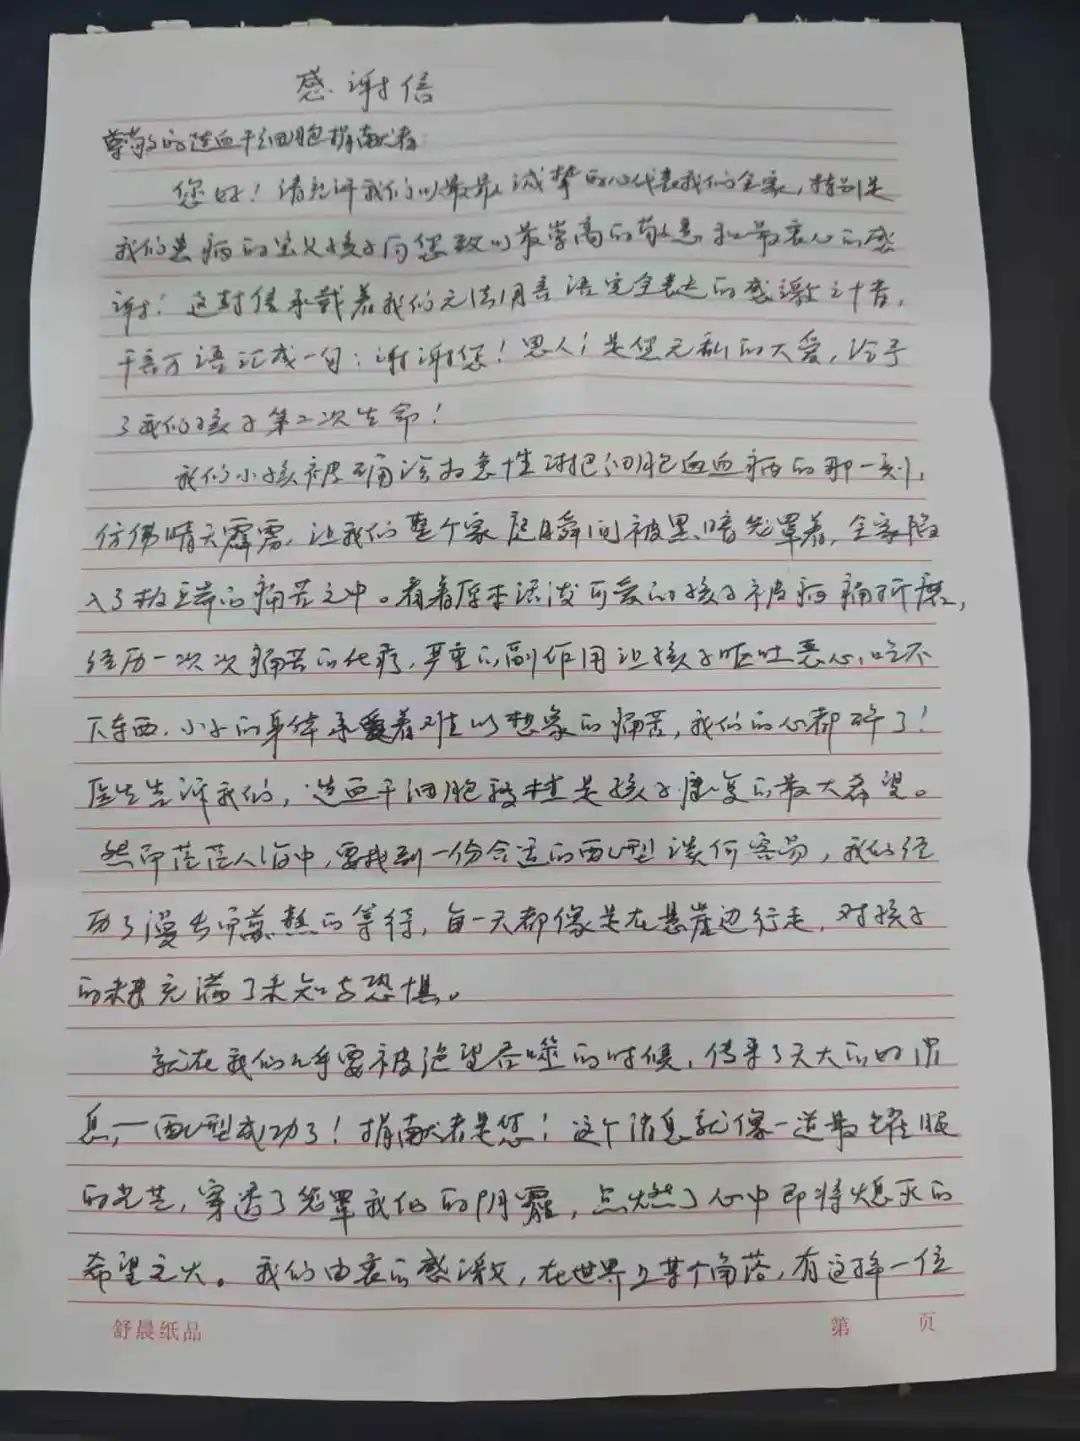 感谢信
尊敬的造血干细胞捐献者：
您好！请允许我们以最最诚挚的心代表我们的全家，特别是
我们患病的宝贝孩子向您致以最崇高的敬意和最衷心的感
谢！这封信承载着我们无法用言语完全表达的感激之情，
千言万语汇成一句：谢谢您！恩人！是您无私的大爱，给予
了我们孩子第二次生命！
我们小孩被确诊为急性淋巴细胞血血病的那一刻，
仿佛晴天霹雳，让我们整个家庭瞬间被黑暗笼罩着，全家陷
入了极端的痛苦之中。看着原本活泼可爱的孩子被病痛折磨，
经历一次次痛苦的化疗，严重的副作用让孩子呕吐恶心，吃不
下东西，小小的身体承受着难以想象的痛苦，我们的心都碎了！
医生告诉我们，造血干细胞移植是孩子康复的最大希望。
然而茫茫人海中，要找到一份合适的配型谈何容易，我们经
历了漫长而煎熬的等待，每一天都像是在悬崖边行走，对孩子
的未来充满了未知与恐惧。
就在我们几乎要被绝望吞噬的时候，传来了天大的好消
息，一配型成功了！捐献者是您！这个消息就像一道最耀眼
的光芒，穿透了笼罩我们的阴霾，点燃了心中即将熄灭的
希望之火。我们由衷的感激，在世界上某个角落，有这样一位
舒晨纸品
第 页